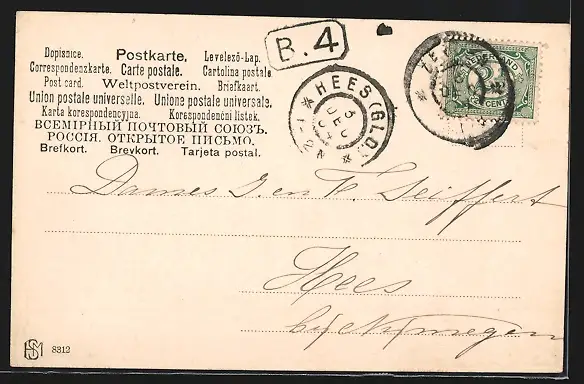 Dopisnice. Postkarte. Levelező-Lap.
Correspondenzkarte. Carte postale. Cartolina postale
Post card. Weltpostverein. Briefkaart.
Union postale universelle. Unione postale universale.
Karta korespondencyjna. Korespondenčni listek.
ВСЕМІРНЫЙ ПОЧТОВЫЙ СОЮЗЪ.
РОССІЯ. ОТКРЫТОЕ ПИСЬМО.
Brefkort. Brevkort. Tarjeta postal.
B.4
HEES (GLD.)
NEDERLAND
CENT
Dames J. en F. Seiffert
Hees
by Nijmegen
HSM 8312